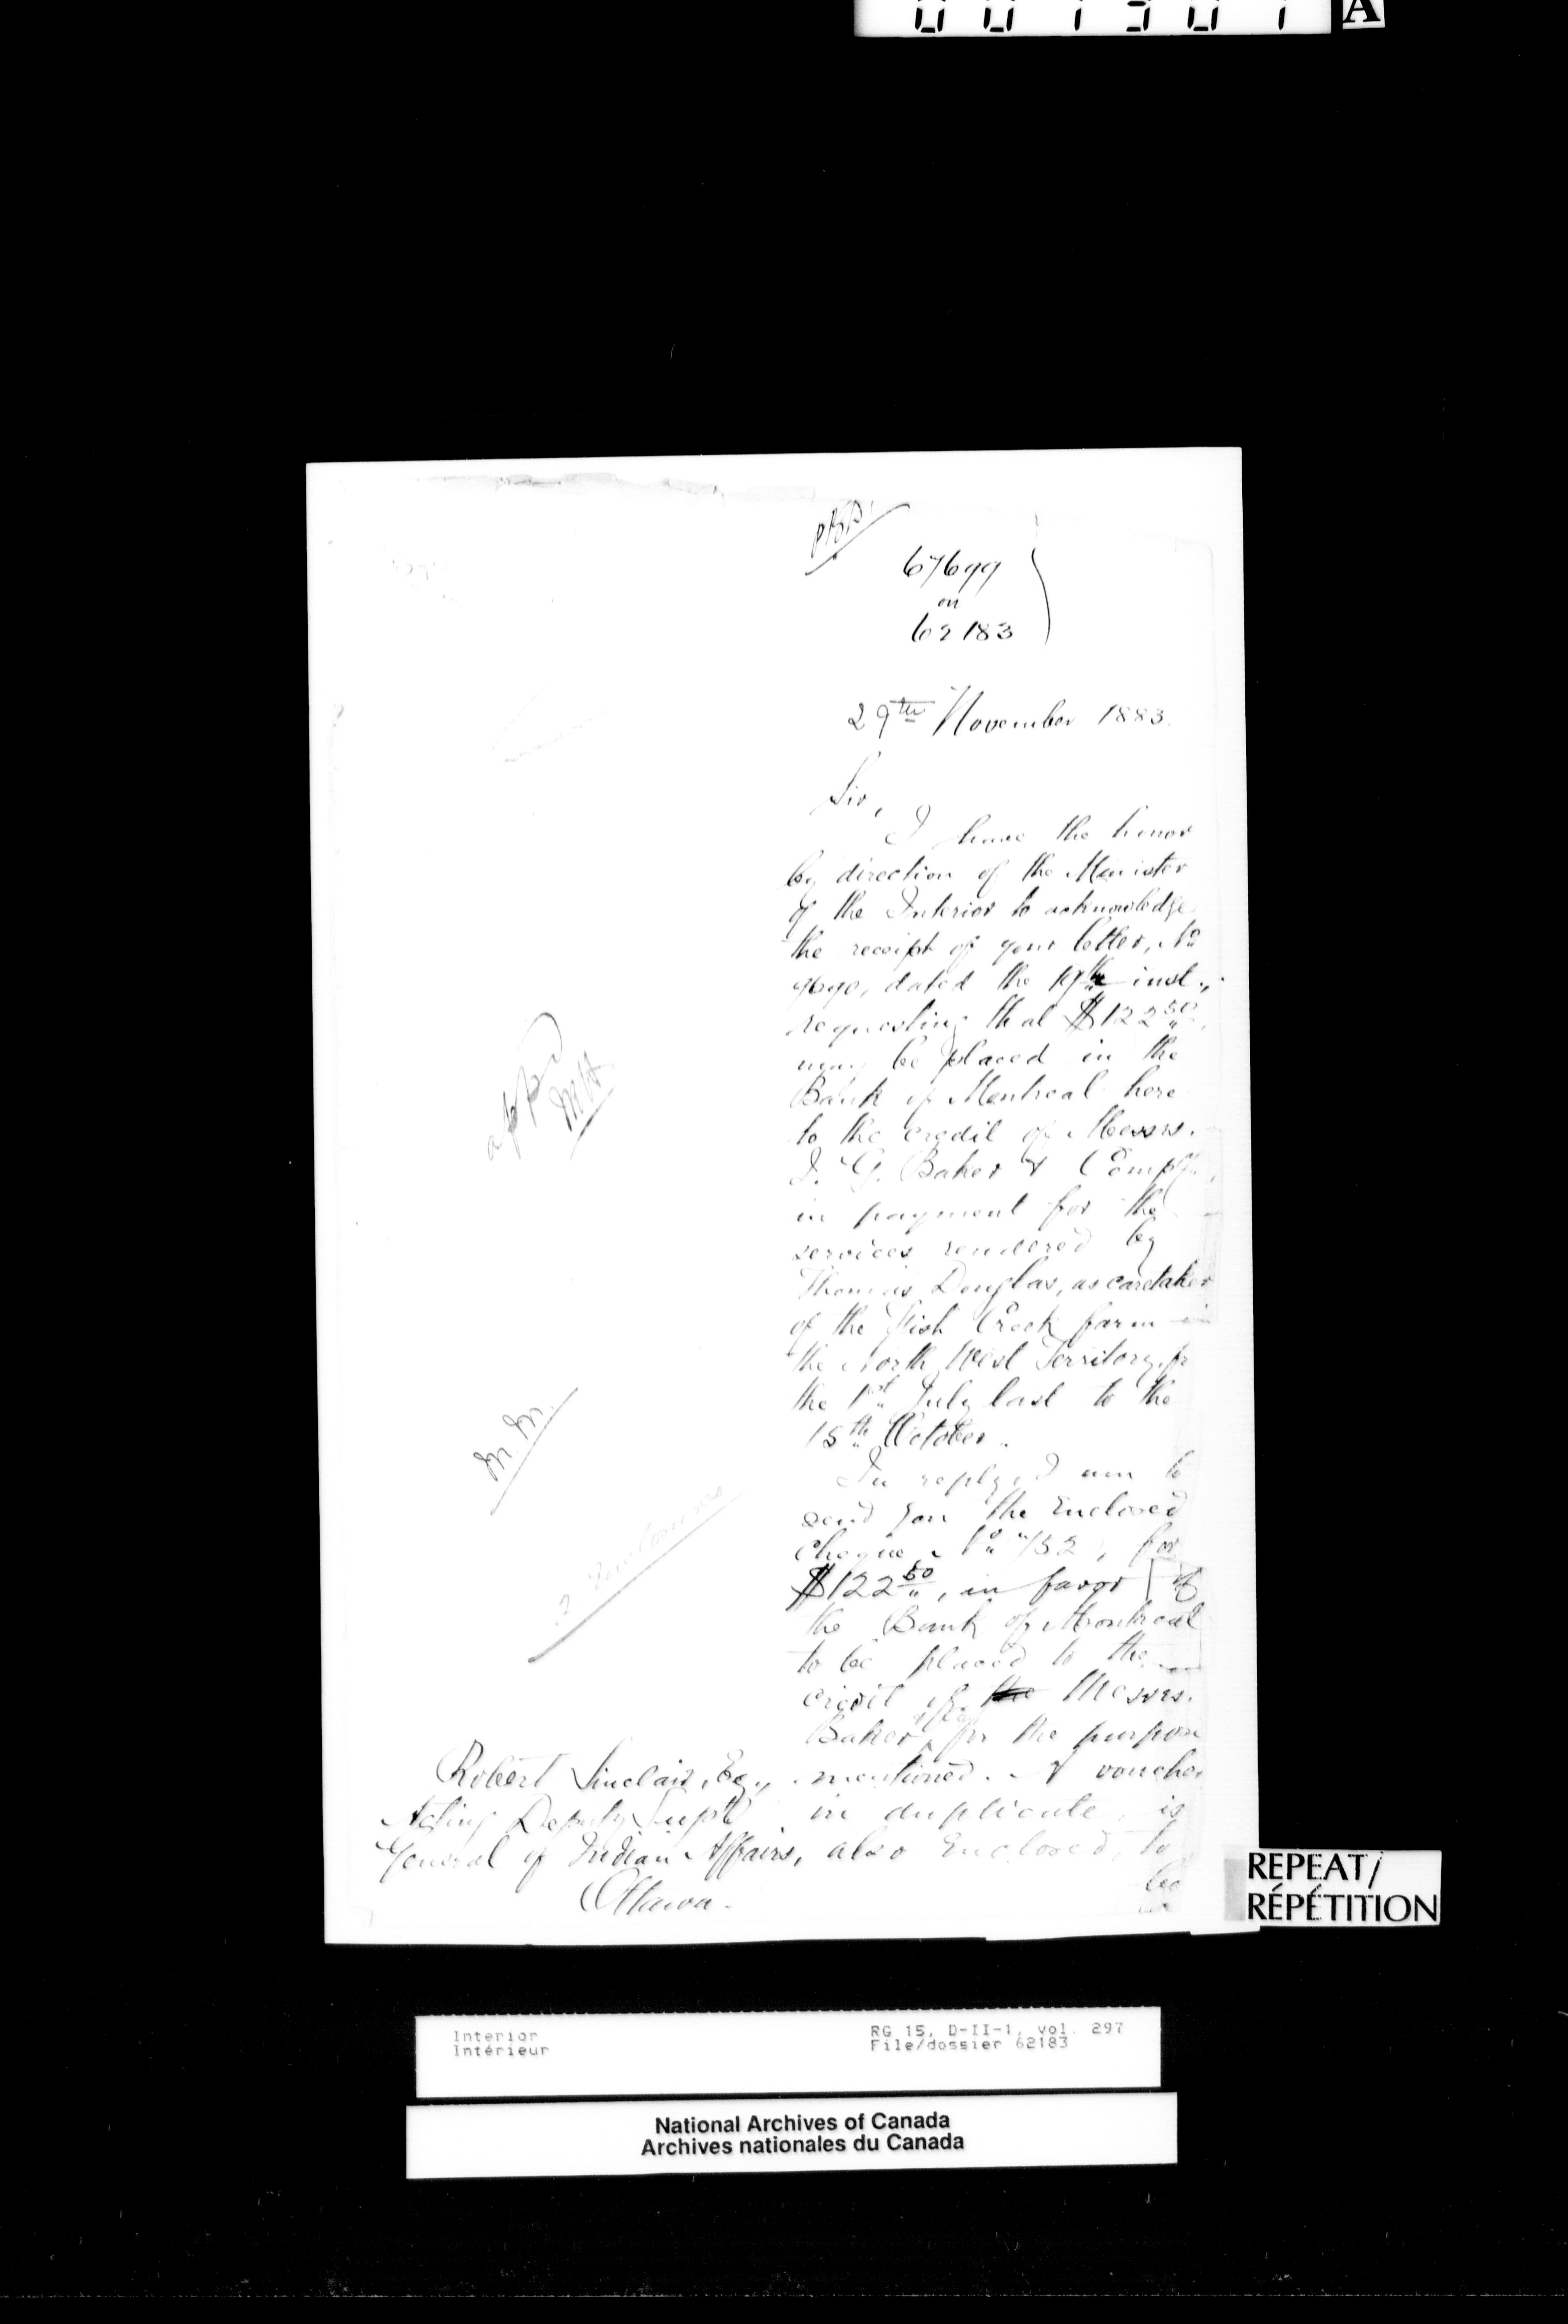 A
67699
on
62183
29th November 1883.
Sir,
I have the honor
by direction of the Minister
of the Interior to acknowledge
the receipt of your letter, No
dated the 19th inst.,
requesting that $122 50
may be placed in the
Bank of Montreal here
to the credit of Messrs.
I. G. Baker & Compy.,
in payment for the
services rendered by
Thomas Douglas, as caretaker
of the Fish Creek farm in
the North West Territory, fr
the 1st July last to the
15th October.
In reply, I am to
send you the Enclosed
Cheque No 752, for
$122 50, in favor of
the Bank of Montreal
to be placed to the
credit of the Messrs.
Baker & Co for the purpose
mentioned. A voucher
in duplicate, is
also Enclosed, to
be
Robert Sinclair, Esq.,
Acting Deputy Supt
General of Indian Affairs,
Ottawa.
appd
MH
M. M.
2 Enclosures
REPEAT/
RÉPÉTITION
Interior
Intérieur
RG 15, D-II-1, vol. 297
File/dossier 62183
National Archives of Canada
Archives nationales du Canada